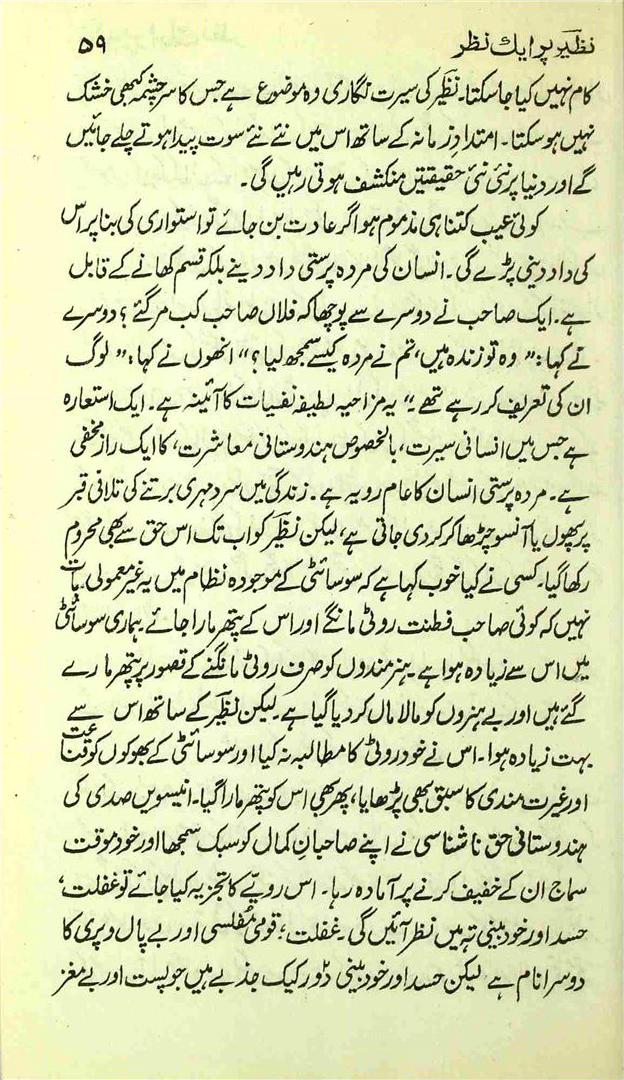 نظیر پر ایک نظر ۵۹
کام نہیں کیا جا سکتا۔ نظیر کی سیرت نگاری وہ موضوع ہے جس کا سرچشمہ کبھی خشک
نہیں ہو سکتا۔ امتدادِ زمانہ کے ساتھ اس میں نئے نئے سوت پیدا ہوتے چلے جائیں
گے اور دنیا پر نئی نئی حقیقتیں منکشف ہوتی رہیں گی۔
کوئی عیب کتنا ہی مذموم ہو اگر عادت بن جائے تو استواری کی بنا پر اس
کی داد دینی پڑے گی۔ انسان کی مردہ پرستی داد دینے بلکہ قسم کھانے کے قابل
ہے۔ ایک صاحب نے دوسرے سے پوچھا کہ فلاں صاحب کب مر گئے؟ دوسرے
نے کہا: ”وہ تو زندہ ہیں، تم نے مردہ کیسے سمجھ لیا؟“ انھوں نے کہا: ”لوگ
ان کی تعریف کر رہے تھے۔“ یہ مزاحیہ لطیفہ نفسیات کا آئینہ ہے۔ ایک استعارہ
ہے جس میں انسانی سیرت، بالخصوص ہندوستانی معاشرت، کا ایک راز مخفی
ہے۔ مردہ پرستی انسان کا عام رویہ ہے۔ زندگی میں سرد مہری برتنے کی تلافی قبر
پر پھول یا آنسو چڑھا کر کر دی جاتی ہے، لیکن نظیر کو اب تک اس حق سے بھی محروم
رکھا گیا۔ کسی نے کیا خوب کہا ہے کہ سوسائٹی کے موجودہ نظام میں یہ غیر معمولی بات
نہیں کہ کوئی صاحب فطنت روٹی مانگے اور اس کے پتھر مارا جائے۔ ہماری سوسائٹی
میں اس سے زیادہ ہوا ہے۔ ہنرمندوں کو صرف روٹی مانگنے کے قصور پر پتھر مارے
گئے ہیں اور بے ہنروں کو مالا مال کر دیا گیا ہے۔ لیکن نظیر کے ساتھ اس سے
بہت زیادہ ہوا۔ اس نے خود روٹی کا مطالبہ نہ کیا اور سوسائٹی کے بھوکوں کو قناعت
اور غیرت مندی کا سبق بھی پڑھایا، پھر بھی اس کو پتھر مارا گیا۔ انیسویں صدی کی
ہندوستانی حق ناشناسی نے اپنے صاحبانِ کمال کو سبک سمجھا اور خود موقت
سماج ان کے خفیف کرنے پر آمادہ رہا۔ اس رویّے کا تجزیہ کیا جائے تو غفلت،
حسد اور خود بینی تہ میں نظر آئیں گی۔ غفلت؛ قومی مفلسی اور بے پال و پری کا
دوسرا نام ہے لیکن حسد اور خود بینی دو رکیک جذبے ہیں جو پست اور بے مغز